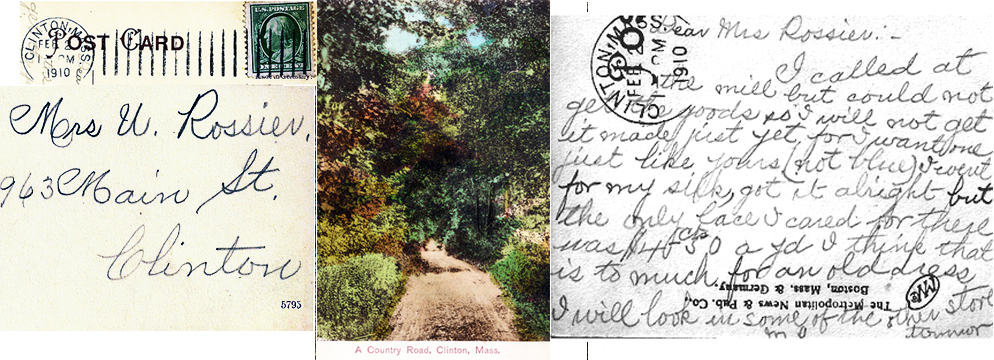 POST CARD
CLINTON, MASS.
FEB 2
PM
1910
U.S. POSTAGE
Made in Germany.
Mrs U. Rossier.
963 Main St.
Clinton
5795
A Country Road, Clinton, Mass.
CLINTON, MASS.
FEB 2
PM
1910
Dear Mrs Rossier:-
I called at
the mill but could not
get the goods so I will not get
it made just yet, for I want one
just like yours (not blue) I went
for my silk, got it alright but
the only lace I cared for there
was 1.40 cts a yd I think that
is to much for an old dress
I will look in some of the other store
The Metropolitan News & Pub. Co.,
Boston, Mass. & Germany.